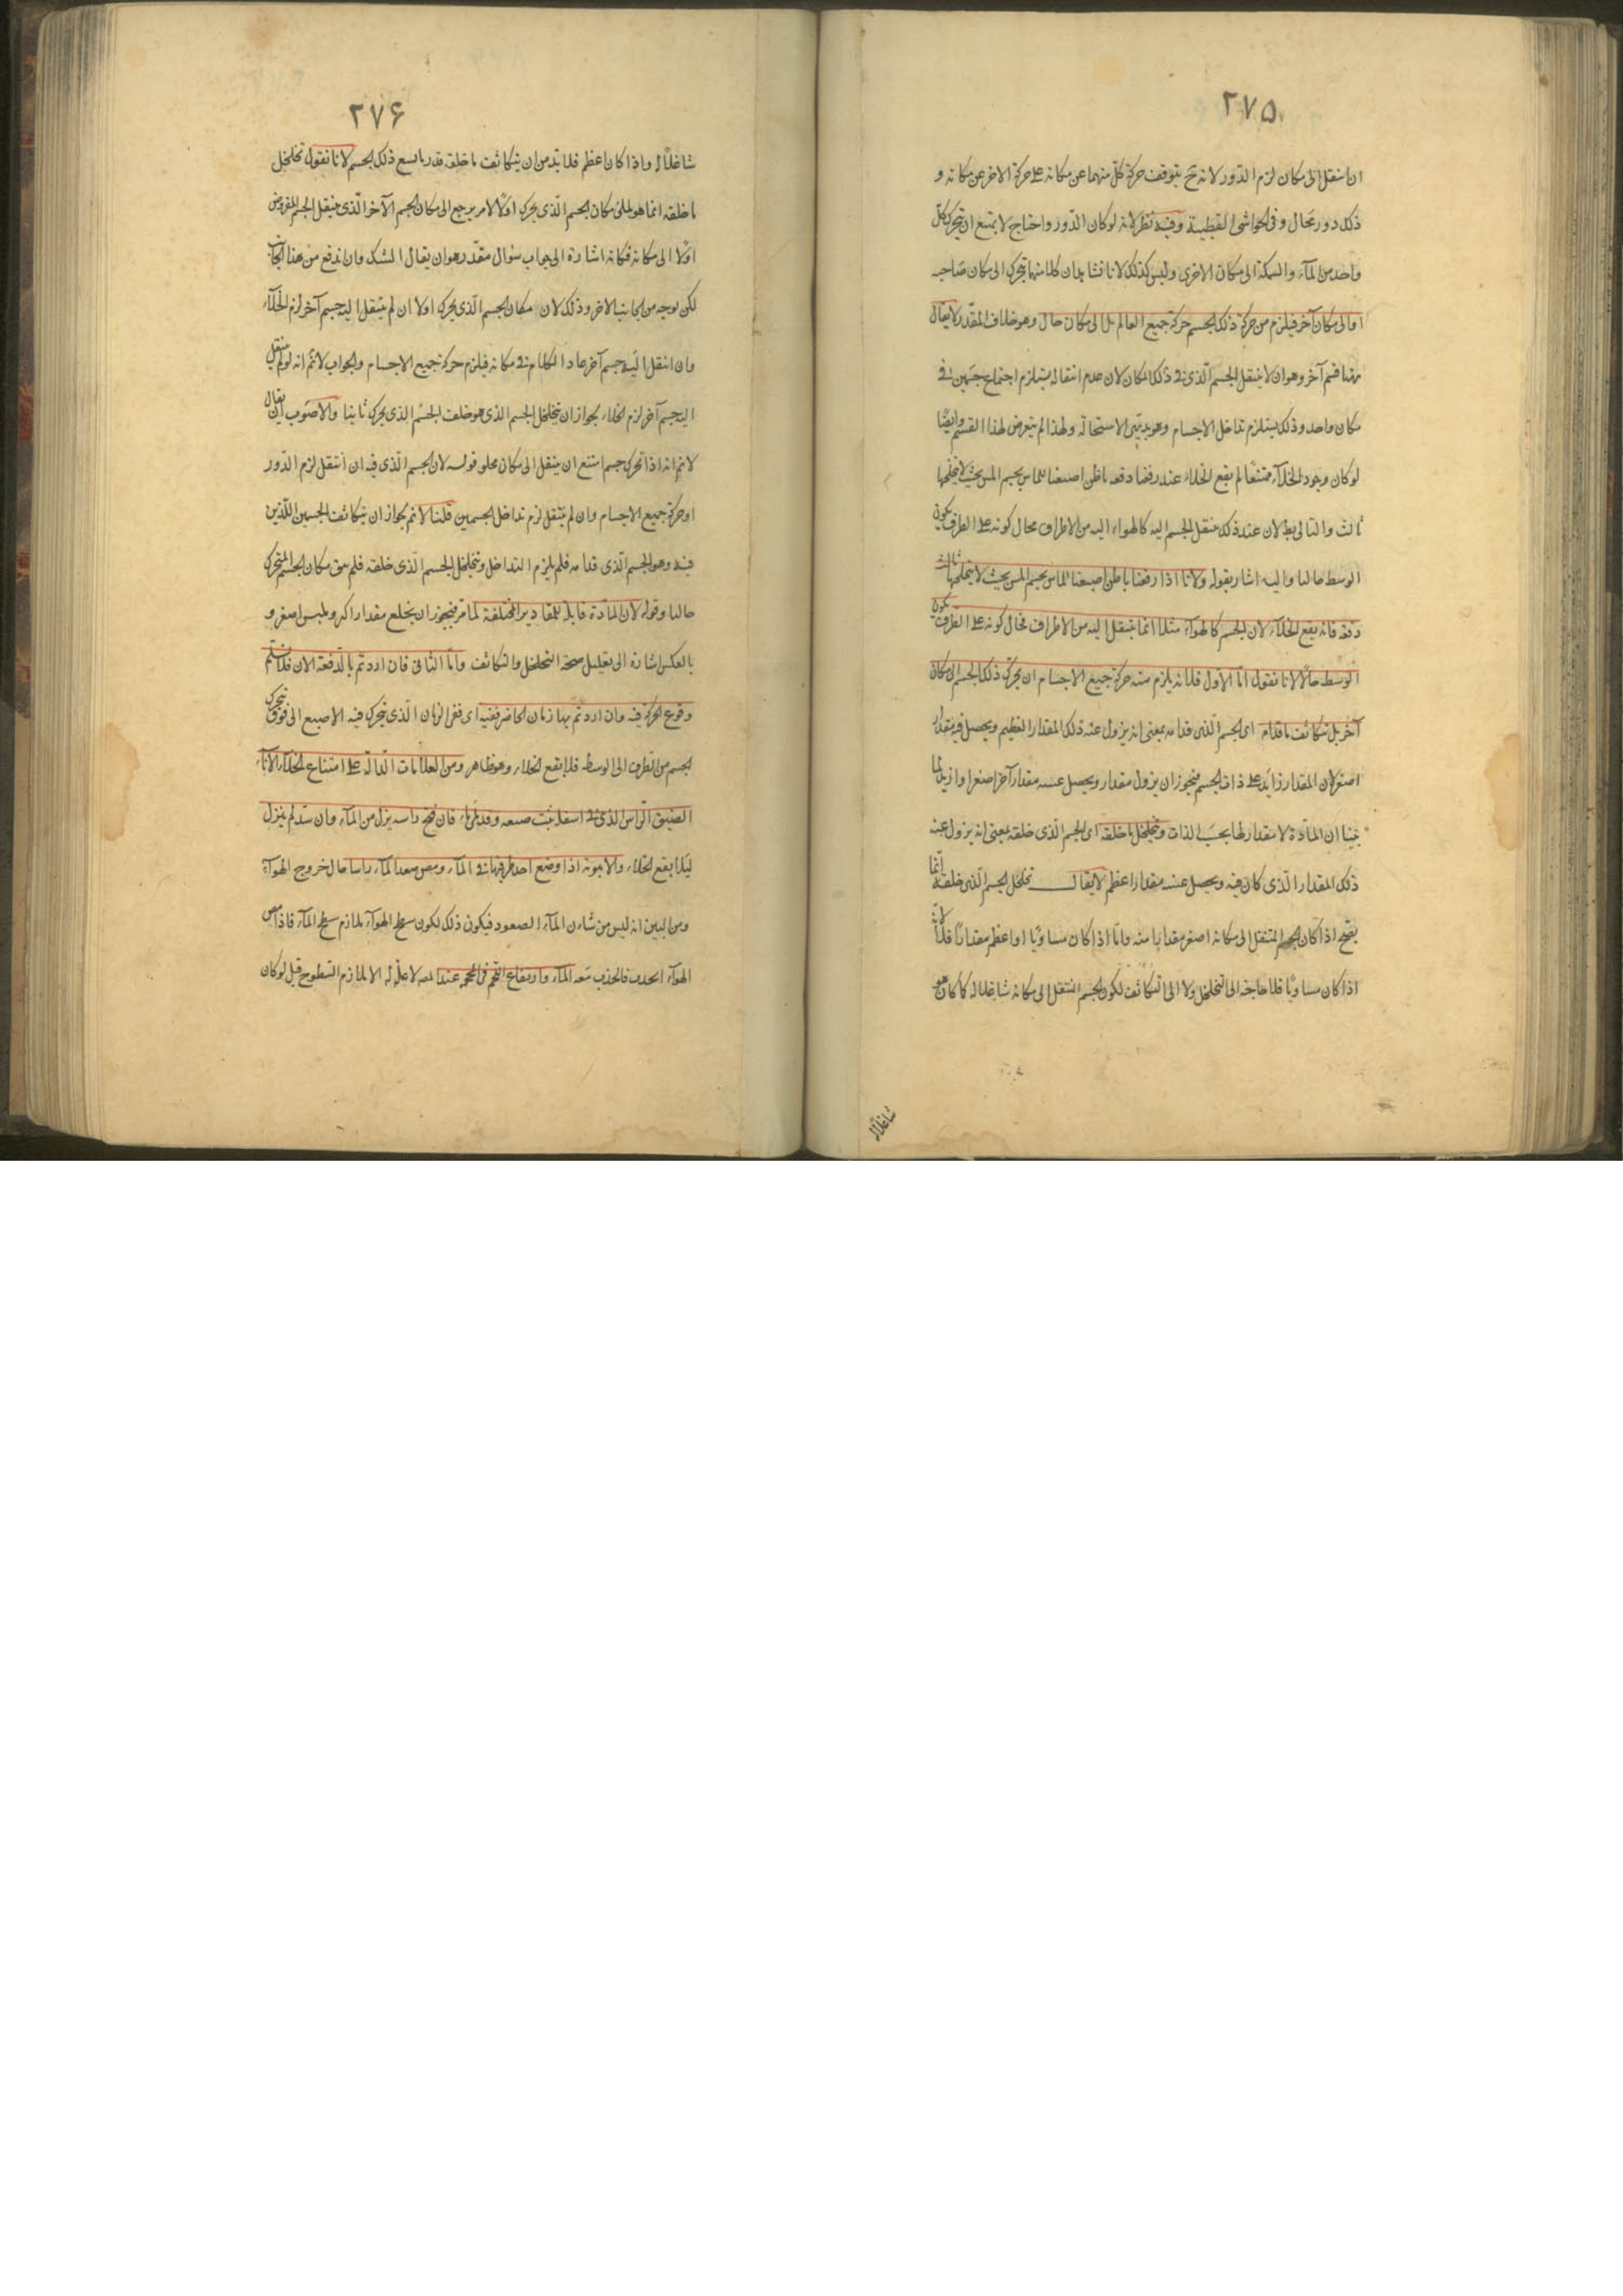 ٢٧٥
ان انتقل الى مكان لزم الدّور لانه ح يتوقف حركة كلّ منهما عن مكانه على حركة الاخر عن مكانه و
ذلك دور محال وفى الحواشى القطبية وفيه نظر لانه لو كان الدّور واحتاج لا يمتنع ان يتحرك كلّ
واحد من المآء والسمكة الى مكان الاخرى وليس كذلك لانا نشاهد ان كلا منهما يتحرك الى مكان صاحبه
او الى مكان آخر فيلزم من حركة ذلك الجسم حركة جميع العالم بل الى مكان خال وهو خلاف المقدر لا يقال
ههنا قسم آخر وهو ان لا ينتقل الجسم الّذى فى ذلك المكان لان عدم انتقاله يستلزم اجتماع جسمين فى
مكان واحد وذلك يستلزم تداخل الاجسام وهو بديهى الاستحالة ولهذا لم يتعرض لهذا القسم وايضًا
لو كان وجود الخلآء ممتنعًا لم يقع الخلاء عند رفعنا دفعه باطن اصبعنا المماس بجسم املس بحيث لا يتخللها
ثالث والتالى بط لان عند ذلك ينتقل الجسم اليه كالهواء اليه من الاطراف محال كونه على الطرف يكون
الوسط خاليا واليه اشار بقوله ولانا اذا رفعنا باطن اصبعنا المماس بجسم املس بحيث لا يتخللها ثالث
دفعة فانه يقع الخلآء لان الجسم كالهوآء مثلا انما ينتقل اليه من الاطراف فحال كونه على الطرف يكون
الوسط خاليًا لانا نقول امّا الاوّل فلانه يلزم منه حركة جميع الاجسام ان يحرك ذلك الجسم الى مكان
آخر بل يتكاثف ما قدامه اى الجسم الّذى قدامه بمعنى انه يزول عنه ذلك المقدار العظيم ويحصل فيه مقدار
اصغر لان المقدار زايد على ذات الجسم فيجوز ان يزول مقدار ويحصل عنه مقدار آخر اصغر او ازيد لما
بينا ان المادّة لا مقدار لها بحسب الذات ويتخلخل ما خلفه اى الجسم الّذى خلفه بمعنى انه يزول عنه
ذلك المقدار الّذى كان فيه ويحصل عنه مقدار اعظم لا يقال تخلخل الجسم الّذى خلفه انّما
يصحّ اذا كان الجسم المنتقل الى مكانه اصغر مقدارا منه وامّا اذا كان مساويًا او اعظم مقدارًا فلا لانّه
اذا كان مساويًا فلا حاجة الى التخلخل ولا الى التكاثف لكون الجسم المنتقل الى مكانه شاغلا له كما كان هو
شاغلًا له
٢٧۶
شاغلًا له واذا كان اعظم فلا بد من ان يتكاثف ما خلفه قدر ما يسع ذلك الجسم لانا نقول تخلخل
ما خلفه انما هو لملئ مكان الجسم الّذى يحرك اولًا لامر يرجع الى مكان الجسم الآخر الّذى ينتقل الجسم المفروض
اولًا الى مكانه فكانه اشارة الى جواب سؤال مقدّر وهو ان يقال الشك وان اندفع من هذا الجانب
لكن يوجه من الجانب الاخر وذلك لان مكان الجسم الّذى يحرك اولا ان لم ينتقل اليه جسم آخر لزم الخلآء
وان انتقل اليه جسم آخر عاد الكلام فى مكانه فيلزم حركة جميع الاجسام والجواب لا نم انه لو لم ينتقل
اليه جسم آخر لزم الخلاء لجواز ان يتخلخل الجسم الذى هو خلف الجسم الذى يحرك ثانيا والاصوب ان يقال
لا نم انه اذا تحرك جسم امتنع ان ينتقل الى مكان مملو قوله لان الجسم الّذى فيه ان انتقل لزم الدّور
او حركة جميع الاجسام وان لم ينتقل لزم تداخل الجسمين قلنا لا نم لجواز ان يتكاثف الجسمين اللّذين
فيه وهو الجسم الّذى قدامه فلم يلزم التداخل ويتخلخل الجسم الّذى خلفه فلم يبق مكان الجسم المتحرك
خاليا وقوله لان المادّة قابلة للمقادير المختلفة لما مر فيجوز ان يخلع مقدارا اكبر ويلبس اصغر و
بالعكس اشارة الى تعليل صحة التخلخل والتكاثف وامّا الثانى فان اردتم بالدّفعة الان فلا نسلّم
وقوع الحركة فيه وان اردتم بها زمان الحاضر ففيه اى ففى الزمان الّذى يتحرك فيه الاصبع الى فوق يتحرك
الجسم من الطرف الى الوسط فلا يقع الخلاء وهو ظاهر ومن العلامات الدّالة على امتناع الخلآء الاناء
الضيق الرّاس الذى فى اسفله ثقب ضيقه وقد ملئ ماء فان فتح راسه نزل من المآء وان سدّ لم ينزل
ليلا يقع الخلاء والانبوبة اذا وضع احد طرفيها فى المآء ومص صعد المآء راسا حال خروج الهوآء
ومن البين انه ليس من شان المآء الصعود فيكون ذلك لكون سطح الهوآء ملازم سطح المآء فاذا مص
الهوآء انجذب فانجذب معه المآء وارتفاع اللحم فى المحجمه عند المص لا علّة له الا ملازم السّطوح قيل لو كان